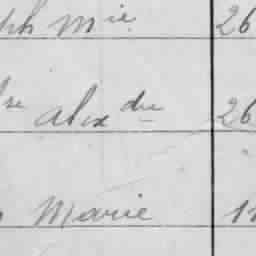 ph Mie 26
se Alexdre 26
Marie